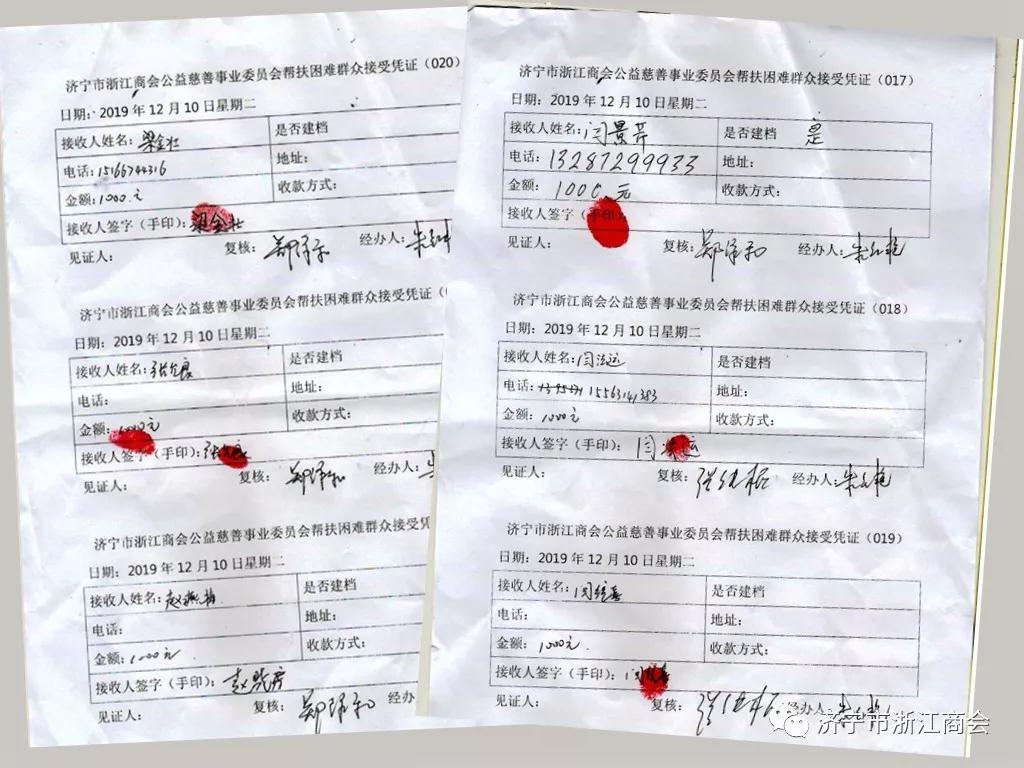 济宁市浙江商会公益慈善事业委员会帮扶困难群众接受凭证（020）
日期：2019 年 12 月 10 日星期二
接收人姓名：梁金壮 是否建档
电话：15166744316 地址：
金额：1000.元 收款方式：
接收人签字（手印）：梁金壮
见证人： 复核：郑泽和 经办人：
济宁市浙江商会公益慈善事业委员会帮扶困难群众接受凭证（
日期：2019 年 12 月 10 日星期二
接收人姓名： 是否建档
电话： 地址：
金额：1000元 收款方式：
接收人签字（手印）：
见证人： 复核：郑泽和 经办人：
济宁市浙江商会公益慈善事业委员会帮扶困难群众接受凭证
日期：2019 年 12 月 10 日星期二
接收人姓名： 是否建档
电话： 地址：
金额：1000元 收款方式：
接收人签字（手印）：
见证人： 复核：郑泽和 经办
济宁市浙江商会公益慈善事业委员会帮扶困难群众接受凭证（017）
日期：2019 年 12 月 10 日星期二
接收人姓名：闫景芹 是否建档 是
电话：13287299933 地址：
金额：1000.元 收款方式：
接收人签字（手印）：
见证人： 复核：郑泽和 经办人：朱红艳
济宁市浙江商会公益慈善事业委员会帮扶困难群众接受凭证（018）
日期：2019 年 12 月 10 日星期二
接收人姓名：闫法运 是否建档
电话：15563141383 地址：
金额：1000元 收款方式：
接收人签字（手印）：闫法运
见证人： 复核： 经办人：朱红艳
济宁市浙江商会公益慈善事业委员会帮扶困难群众接受凭证（019）
日期：2019 年 12 月 10 日星期二
接收人姓名： 是否建档
电话： 地址：
金额：1000元. 收款方式：
接收人签字（手印）：
见证人： 复核： 经办人：
济宁市浙江商会